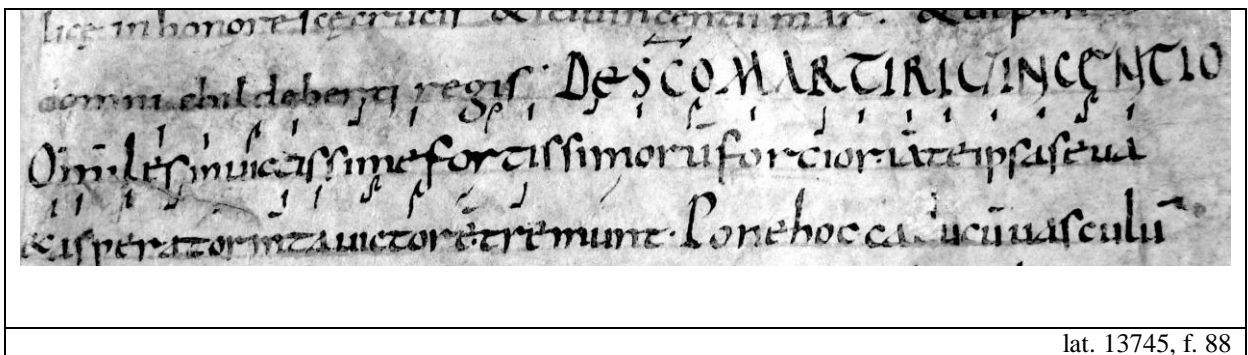 licę in honore scę crucis & sci uincentii mar.
domni childeberti regis· DE SC̄O MARTIRI UINCENTIO
O miles inuictissime fortissimorū fortior· iā te ipsa seua
& aspera tormta uictorē tremunt· Pone hoc caducū uasculū
lat. 13745, f. 88